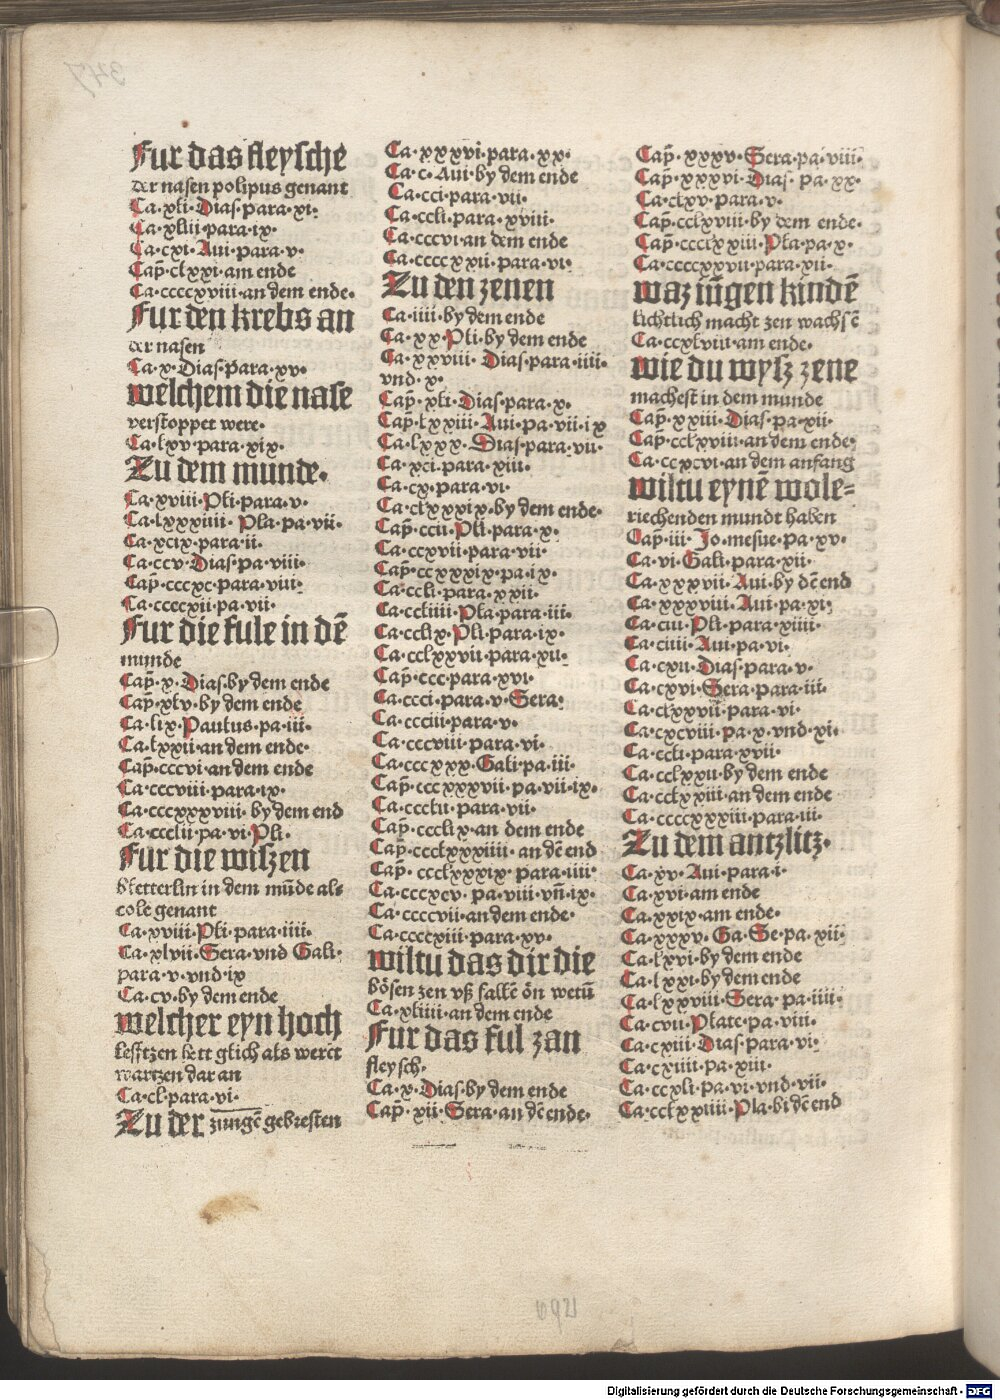 Fur das fleysche
der nasen polipus genant
Ca·xli·Dias·para·xi·
Ca·xliii·para·ix·
Ca·cxi·Aui·para·v·
Cap̄·clxxi·am ende
Ca·ccccxviii·an dem ende·
Fur den krebs an
der nasen
Ca·x·Dias·para·xv·
welchem die nase
verstoppet were·
Ca·lxv·para·xix·
Zu dem munde·
Ca·xviii·Pli·para·v·
Ca·lxxxiiii·Pla·pa·vii·
Ca·xcix·para·ii·
Ca·ccv·Dias·pa·viii·
Cap̄·cccxc·para·viii·
Ca·ccccxii·pa·vii·
Fur die fule in dē
munde
Cap̄·x·Dias·by dem ende
Cap̄·xlv·by dem ende
Ca·lix·Paulus·pa·iii·
Ca·lxxii·an dem ende·
Cap̄·cccvi·an dem ende
Ca·cccviii·para·ix·
Ca·cccxxxviii·by dem end
Ca·ccclii·pa·vi·Pli·
Fur die wiszen
bletterlin in dem mūde al=
cole genant
Ca·xviii·Pli·para·iiii·
Ca·xlvii·Sera·vnd Gali·
para·v·vnd·ix
Ca·cv·by dem ende
welcher eyn hoch
lesstzen hett glich als werct
wartzen dar an
Ca·cl·para·vi·
Zu der zungē gebresten
Ca·xxxvi·para·xx·
Ca·c·Aui·by dem ende
Ca·cci·para·vii·
Ca·ccli·para·xviii·
Ca·cccvi·an dem ende
Ca·ccccxxii·para·vi·
Zu den zenen
Ca·iiii·by dem ende
Ca·xx·Pli·by dem ende
Ca·xxviii·Dias·para·iiii·
vnd·x·
Cap̄·xli·Dias·para·x·
Cap̄·lxxiii·Aui·pa·vii·ix
Ca·lxxx·Dias·para·vii·
Ca·xci·para·xiii·
Ca·cx·para·vi·
Ca·clxxxix·by dem ende·
Cap̄·ccii·Pli·para·x·
Ca·ccxvii·para·vii·
Cap̄·ccxxxix·pa·ix·
Ca·ccli·para·xxii·
Ca·ccliiii·Pla·para·iii·
Ca·cclix·Pli·para·ix·
Ca·cclxxvii·para·xii·
Cap̄·ccc·para·xvi·
Ca·ccci·para·v·Sera·
Ca·ccciii·para·v·
Ca·cccviii·para·vi·
Ca·cccxxx·Gali·pa·iii·
Cap̄·cccxxxvii·pa·vii·ix·
Ca·ccclii·para·vii·
Cap̄·ccclix·an dem ende
Cap̄·ccclxxxiiii·an dē end
Cap̄·ccclxxxix·para·iiii·
Ca·cccxcv·pa·viii·vn̄·ix·
Ca·ccccvii·an dem ende·
Ca·ccccxiii·para·xv·
wiltu das dir die
bösen zen vß fallē ōn wetū
Ca·xliiii·an dem ende
Fur das ful zan
fleysch·
Ca·x·Dias·by dem ende
Cap̄·xii·Sera·an dē ende·
Cap̄·xxxv·Sera·pa·viii·
Cap̄·xxxvi·Dias·pa·xx·
Ca·clxv·para·v·
Cap̄·cclxviii·by dem ende·
Cap̄·cccclxxiii·Pla·pa·x·
Ca·ccccxxvii·para·xii·
waz iūgen kindē
lichtlich macht zen wachsē
Ca·ccxlviii·am ende·
wie du wysz zene
machest in dem munde
Cap̄·xxiii·Dias·pa·xii·
Cap̄·cclxviii·an dem ende·
Ca·ccxcvi·an dem anfang
wiltu eynē wole=
riechenden mundt haben
Cap̄·iii·Jo·mesue·pa·xv·
Ca·vi·Gali·para·xii·
Ca·xxxvii·Aui·by dē end
Ca·xxxviii·Aui·pa·xi·
Ca·ciii·Pli·para·xiiii·
Ca·ciiii·Aui·pa·vi·
Ca·cxii·Dias·para·v·
Ca·cxvi·Sera·para·iii·
Ca·clxxvii·para·vi·
Ca·cxcviii·pa·x·vnd·xi·
Ca·ccli·para·xvii·
Ca·cclxxii·by dem ende
Ca·cclxxiii·an dem ende
Ca·ccccxxxiii·para·iii·
Zu dem antzlitz·
Ca·xv·Aui·para·i·
Ca·xvi·am ende
Ca·xxix·am ende·
Ca·xxxv·Ga·Se·pa·xii·
Ca·lxvi·by dem ende
Ca·lxxi·by dem ende
Ca·lxxviii·Sera·pa·iiii·
Ca·cvii·Plate·pa·viii·
Ca·cxiii·Dias·para·vi·
Ca·cxiiii·pa·xiii·
Ca·ccxli·pa·vi·vnd·vii·
Ca·cclxxiiii·Pla·bi dē end
Digitalisierung gefördert durch die Deutsche Forschungsgemeinschaft - DFG